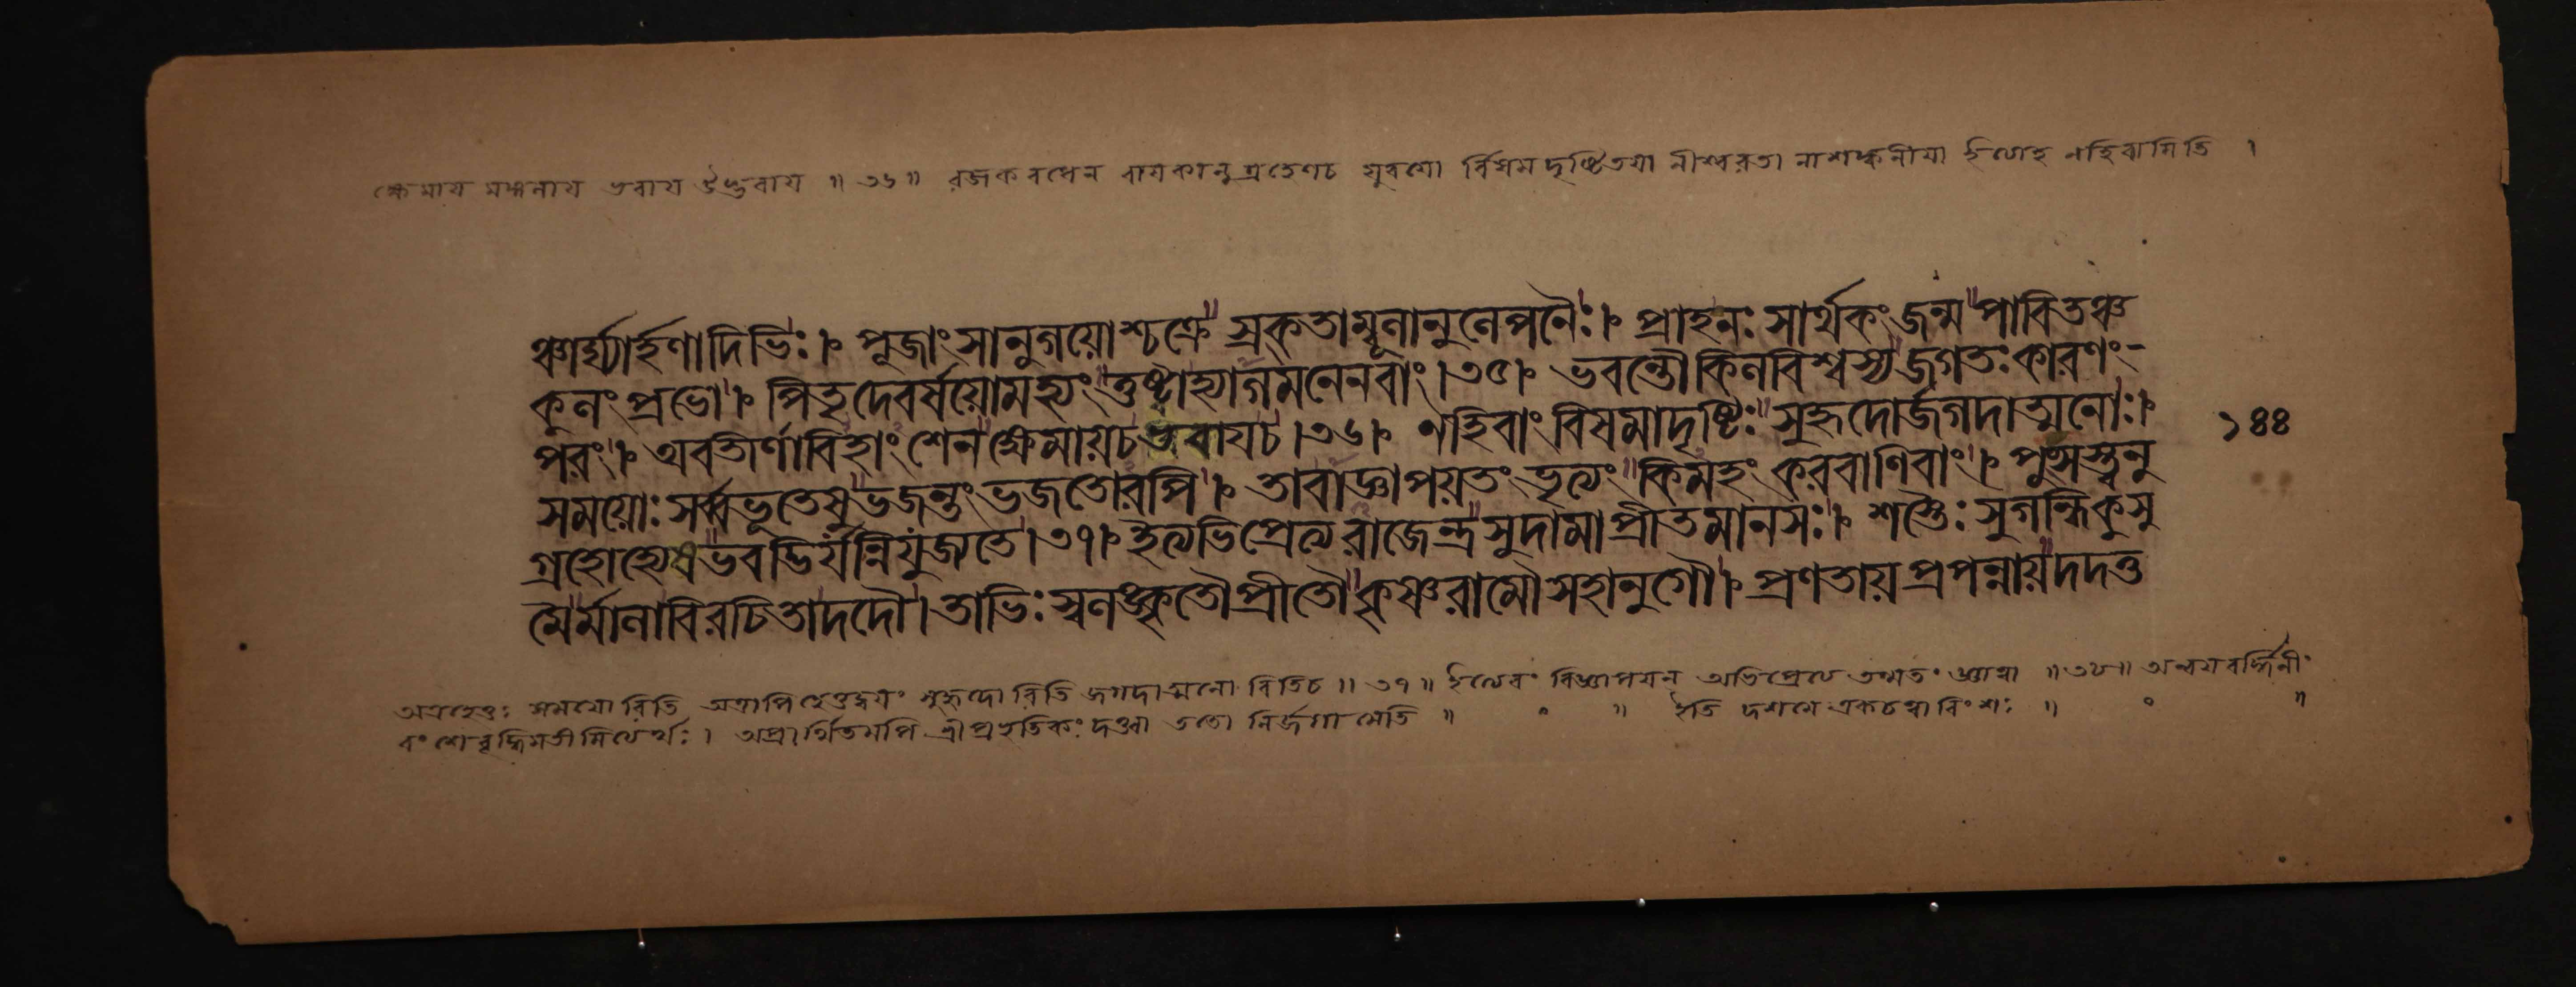 ক্ষেমায মঙ্গলায ভবায উদ্ভবায ॥ ৩৬ ॥ রজক বধেন বাযকানুগ্রহেণচ যুবযো র্বিষম দৃষ্টিতযা নীশ্বরতা নাশঙ্কনীযা ইত্যাহ নহি বামিতি ।
ঞ্চার্ঘ্যার্হণাদিভিঃ। পূজাং সানুগয়োশ্চক্রে স্রক্তাম্বূলানুলেপনৈঃ। প্রাহনঃ সার্থকং জন্ম পাবিতঞ্চ
কুলং প্রভো। পিতৃদেবর্ষয়োমহ্যং তুষ্টাহ্যাগমনেনবাং।৩৫। ভবন্তৌ কিলবিশ্বস্য জগতঃ কারণং
পরং। অবতীর্ণাবিহাংশেন ক্ষেমায়চ ভবায়চ।৩৬। নহিবাং বিষমাদৃষ্টিঃ সুহৃদোর্জগদাত্মনোঃ। ১৪৪
সময়োঃ সর্ব্বভূতেষু ভজন্তং ভজতোরপি। তাবাজ্ঞাপয়তং ভৃত্যং কিমহং করবাণিবাং। পুংসস্ত্বনু
গ্রহোহ্যেষ ভবদ্ভির্যন্নিযুজ্যতে।৩৭। ইত্যভিপ্রেত্য রাজেন্দ্র সুদামা প্রীতমানসঃ। শস্তৈঃ সুগন্ধিকুসু
মৈর্মালাবিরচিতাদদৌ। তাভিঃ স্বলঙ্কৃতৌপ্রীতৌ কৃষ্ণরামৌসহানুগৌ। প্রণতায় প্রপন্নায় দদতু
অত্রহেতুঃ সমযো রিতি অত্রাপি হেতুদ্বযং সুহৃদো রিতি জগদাত্মনো রিতিচ ॥ ৩৭ ॥ ইত্যেবং বিজ্ঞাপযন্ অভিপ্রেত্য তন্মতং জ্ঞাত্বা ॥ ৩৮ ॥ অন্বযবর্দ্ধিনীং
বংশে বৃদ্ধিমতীমিত্যর্থঃ । অপ্রার্থিতমপি শ্রী প্রভৃতিকং দত্ত্বা ততো নির্জগামেতি ॥ ॰ ॥ ইতি দশমে একচত্বারিংশঃ ॥ ॰ ॥